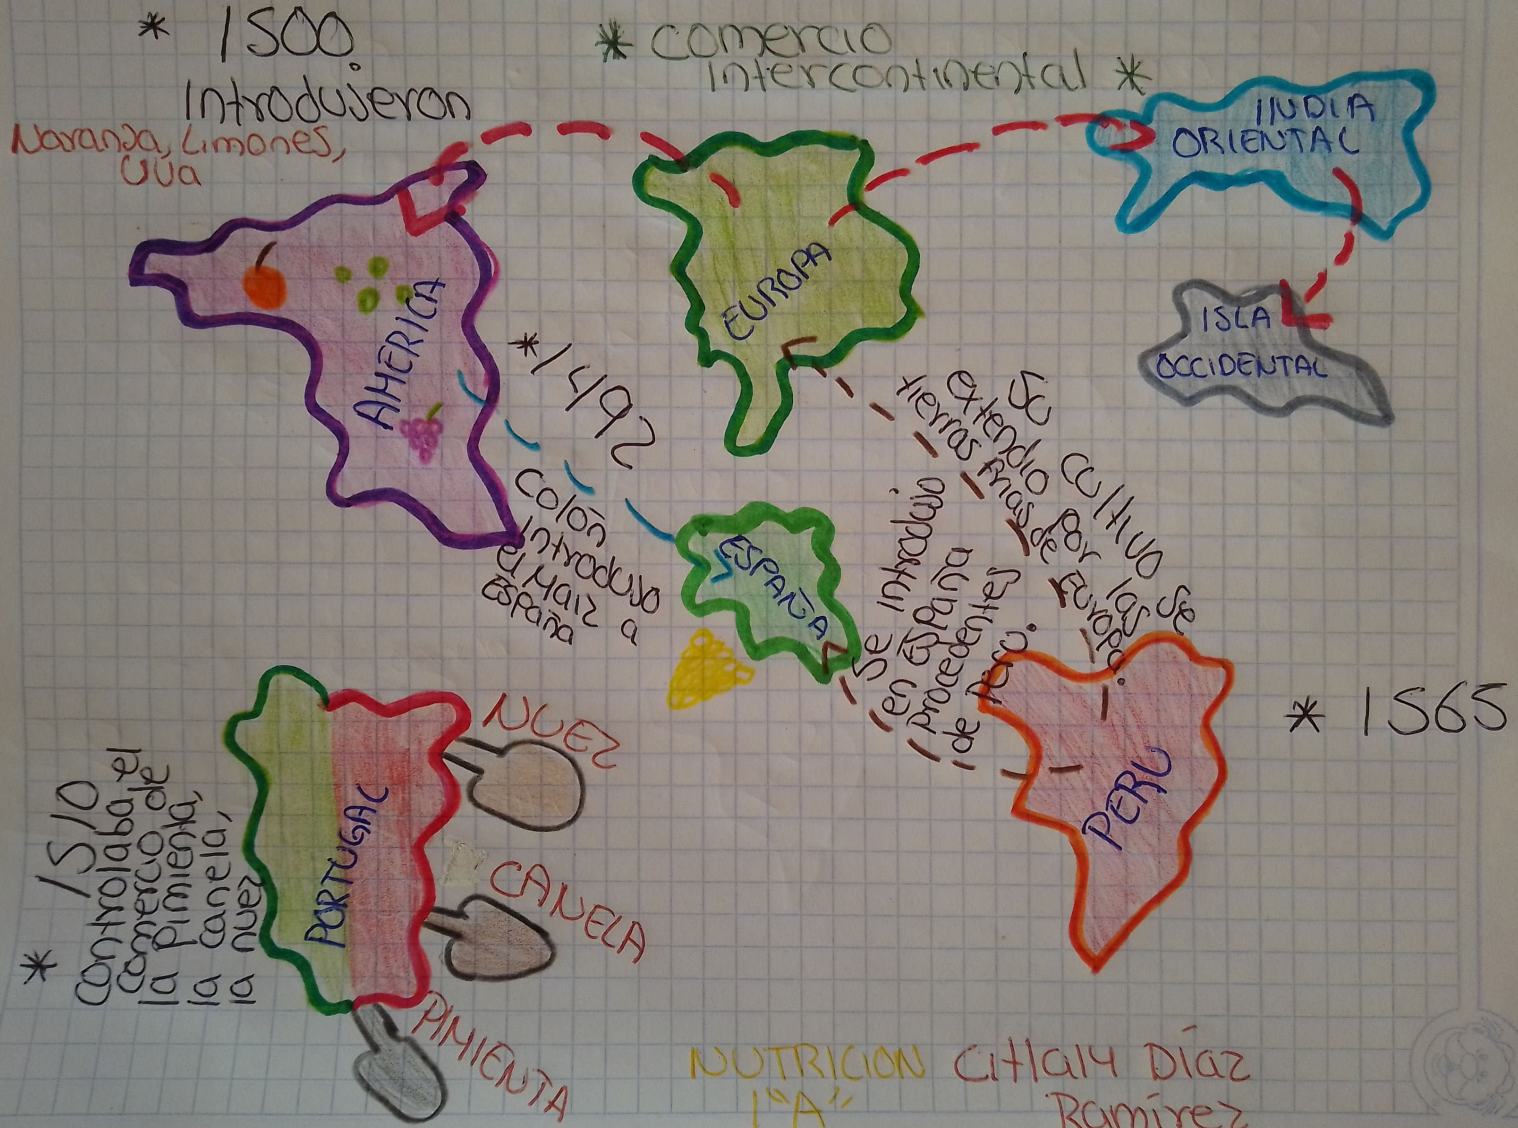 * 1500.
Introdujeron
Naranja, Limones,
Uva
* Comercio
Intercontinental *
INDIA
ORIENTAL
ISLA
OCCIDENTAL
EUROPA
AMÉRICA
* 1492
Colón
introdujo
el Maiz a
España
ESPAÑA
Su cultivo se
extendio por las
tierras frias de Europa.
Se introdujo
en España
procedentes
de Perú.
PERU
* 1565
* 1510
Controlaba el
comercio de
la pimienta,
la canela,
la nuez
PORTUGAL
NUEZ
CANELA
PIMIENTA
NUTRICION
1"A"
Citlaly Díaz
Ramírez